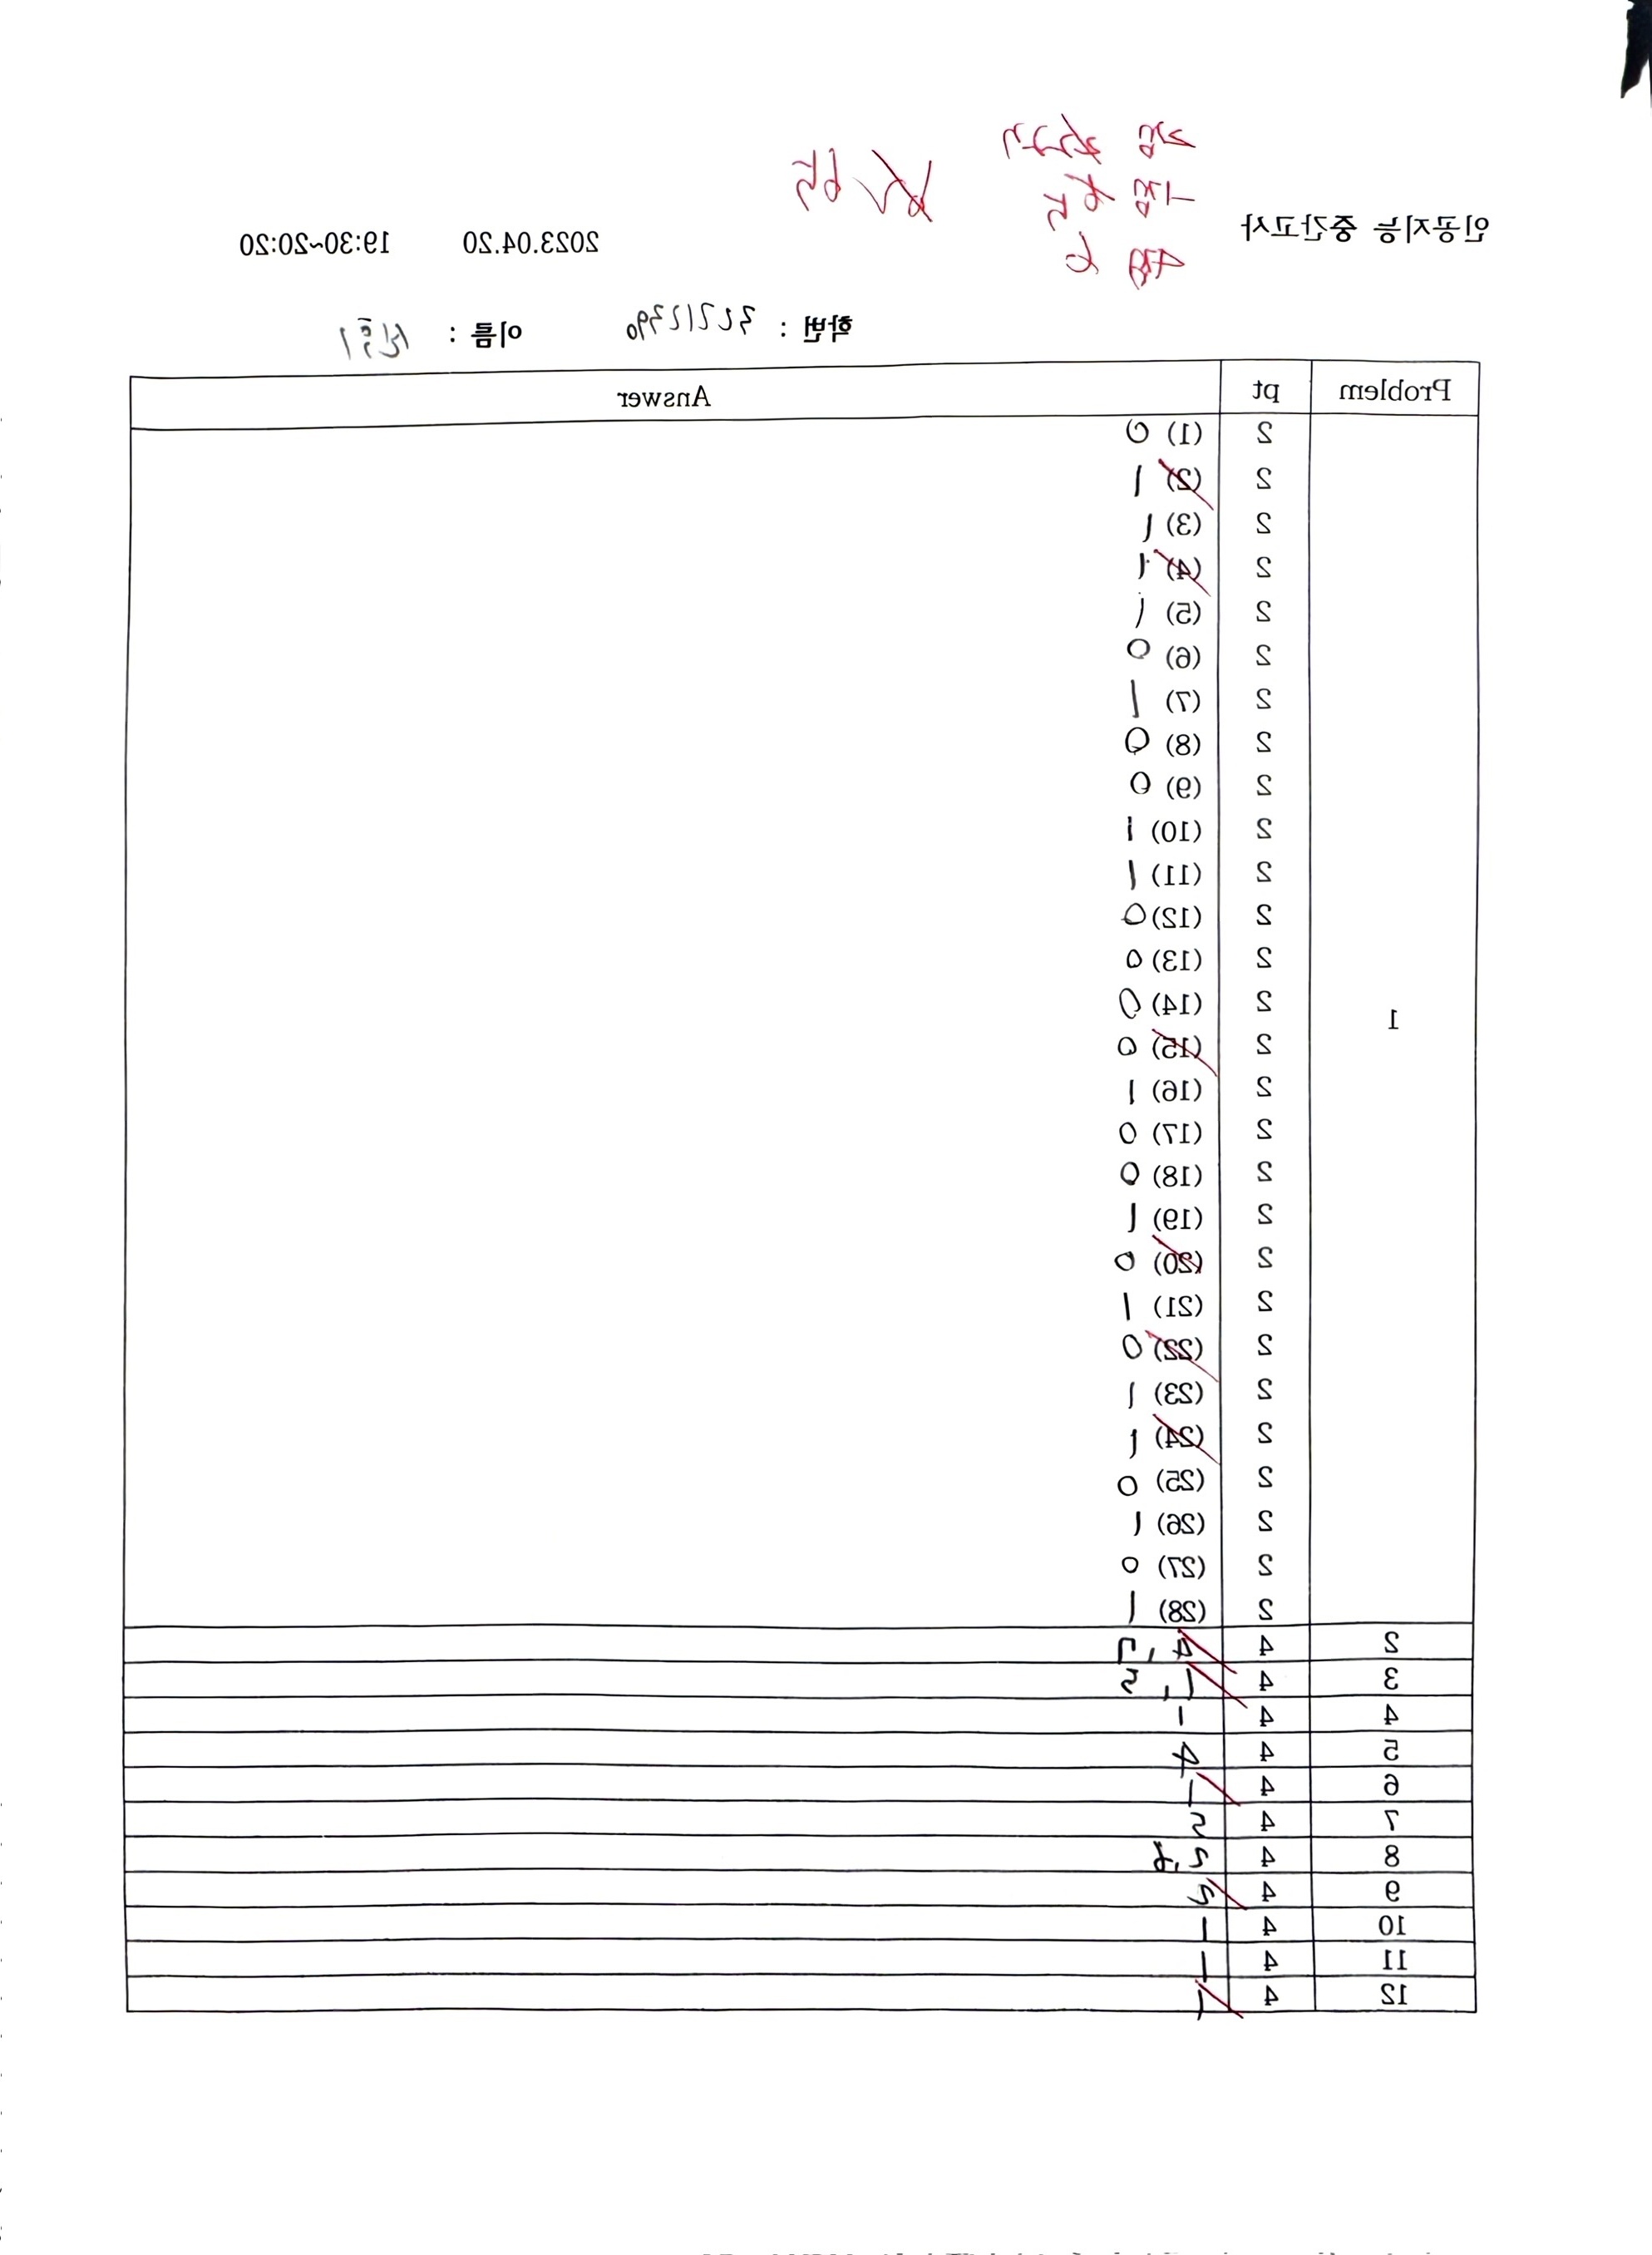 인공지능 중간고사 2023.04.20 19:30~20:20
학번 : 이름 :
Problem pt Answer
1
2 (1) 0
2 (2) 1
2 (3) 1
2 (4) 1
2 (5) 1
2 (6) 0
2 (7) 1
2 (8) 0
2 (9) 0
2 (10) 1
2 (11) 1
2 (12) 0
2 (13) 0
2 (14) 0
2 (15) 0
2 (16) 1
2 (17) 0
2 (18) 0
2 (19) 1
2 (20) 0
2 (21) 1
2 (22) 0
2 (23) 1
2 (24) 1
2 (25) 0
2 (26) 1
2 (27) 0
2 (28) 1
2 4 4,
3 4 1, 2
4 4 1
5 4 4
6 4 1
7 4 2
8 4
9 4
10 4 1
11 4 1
12 4 1